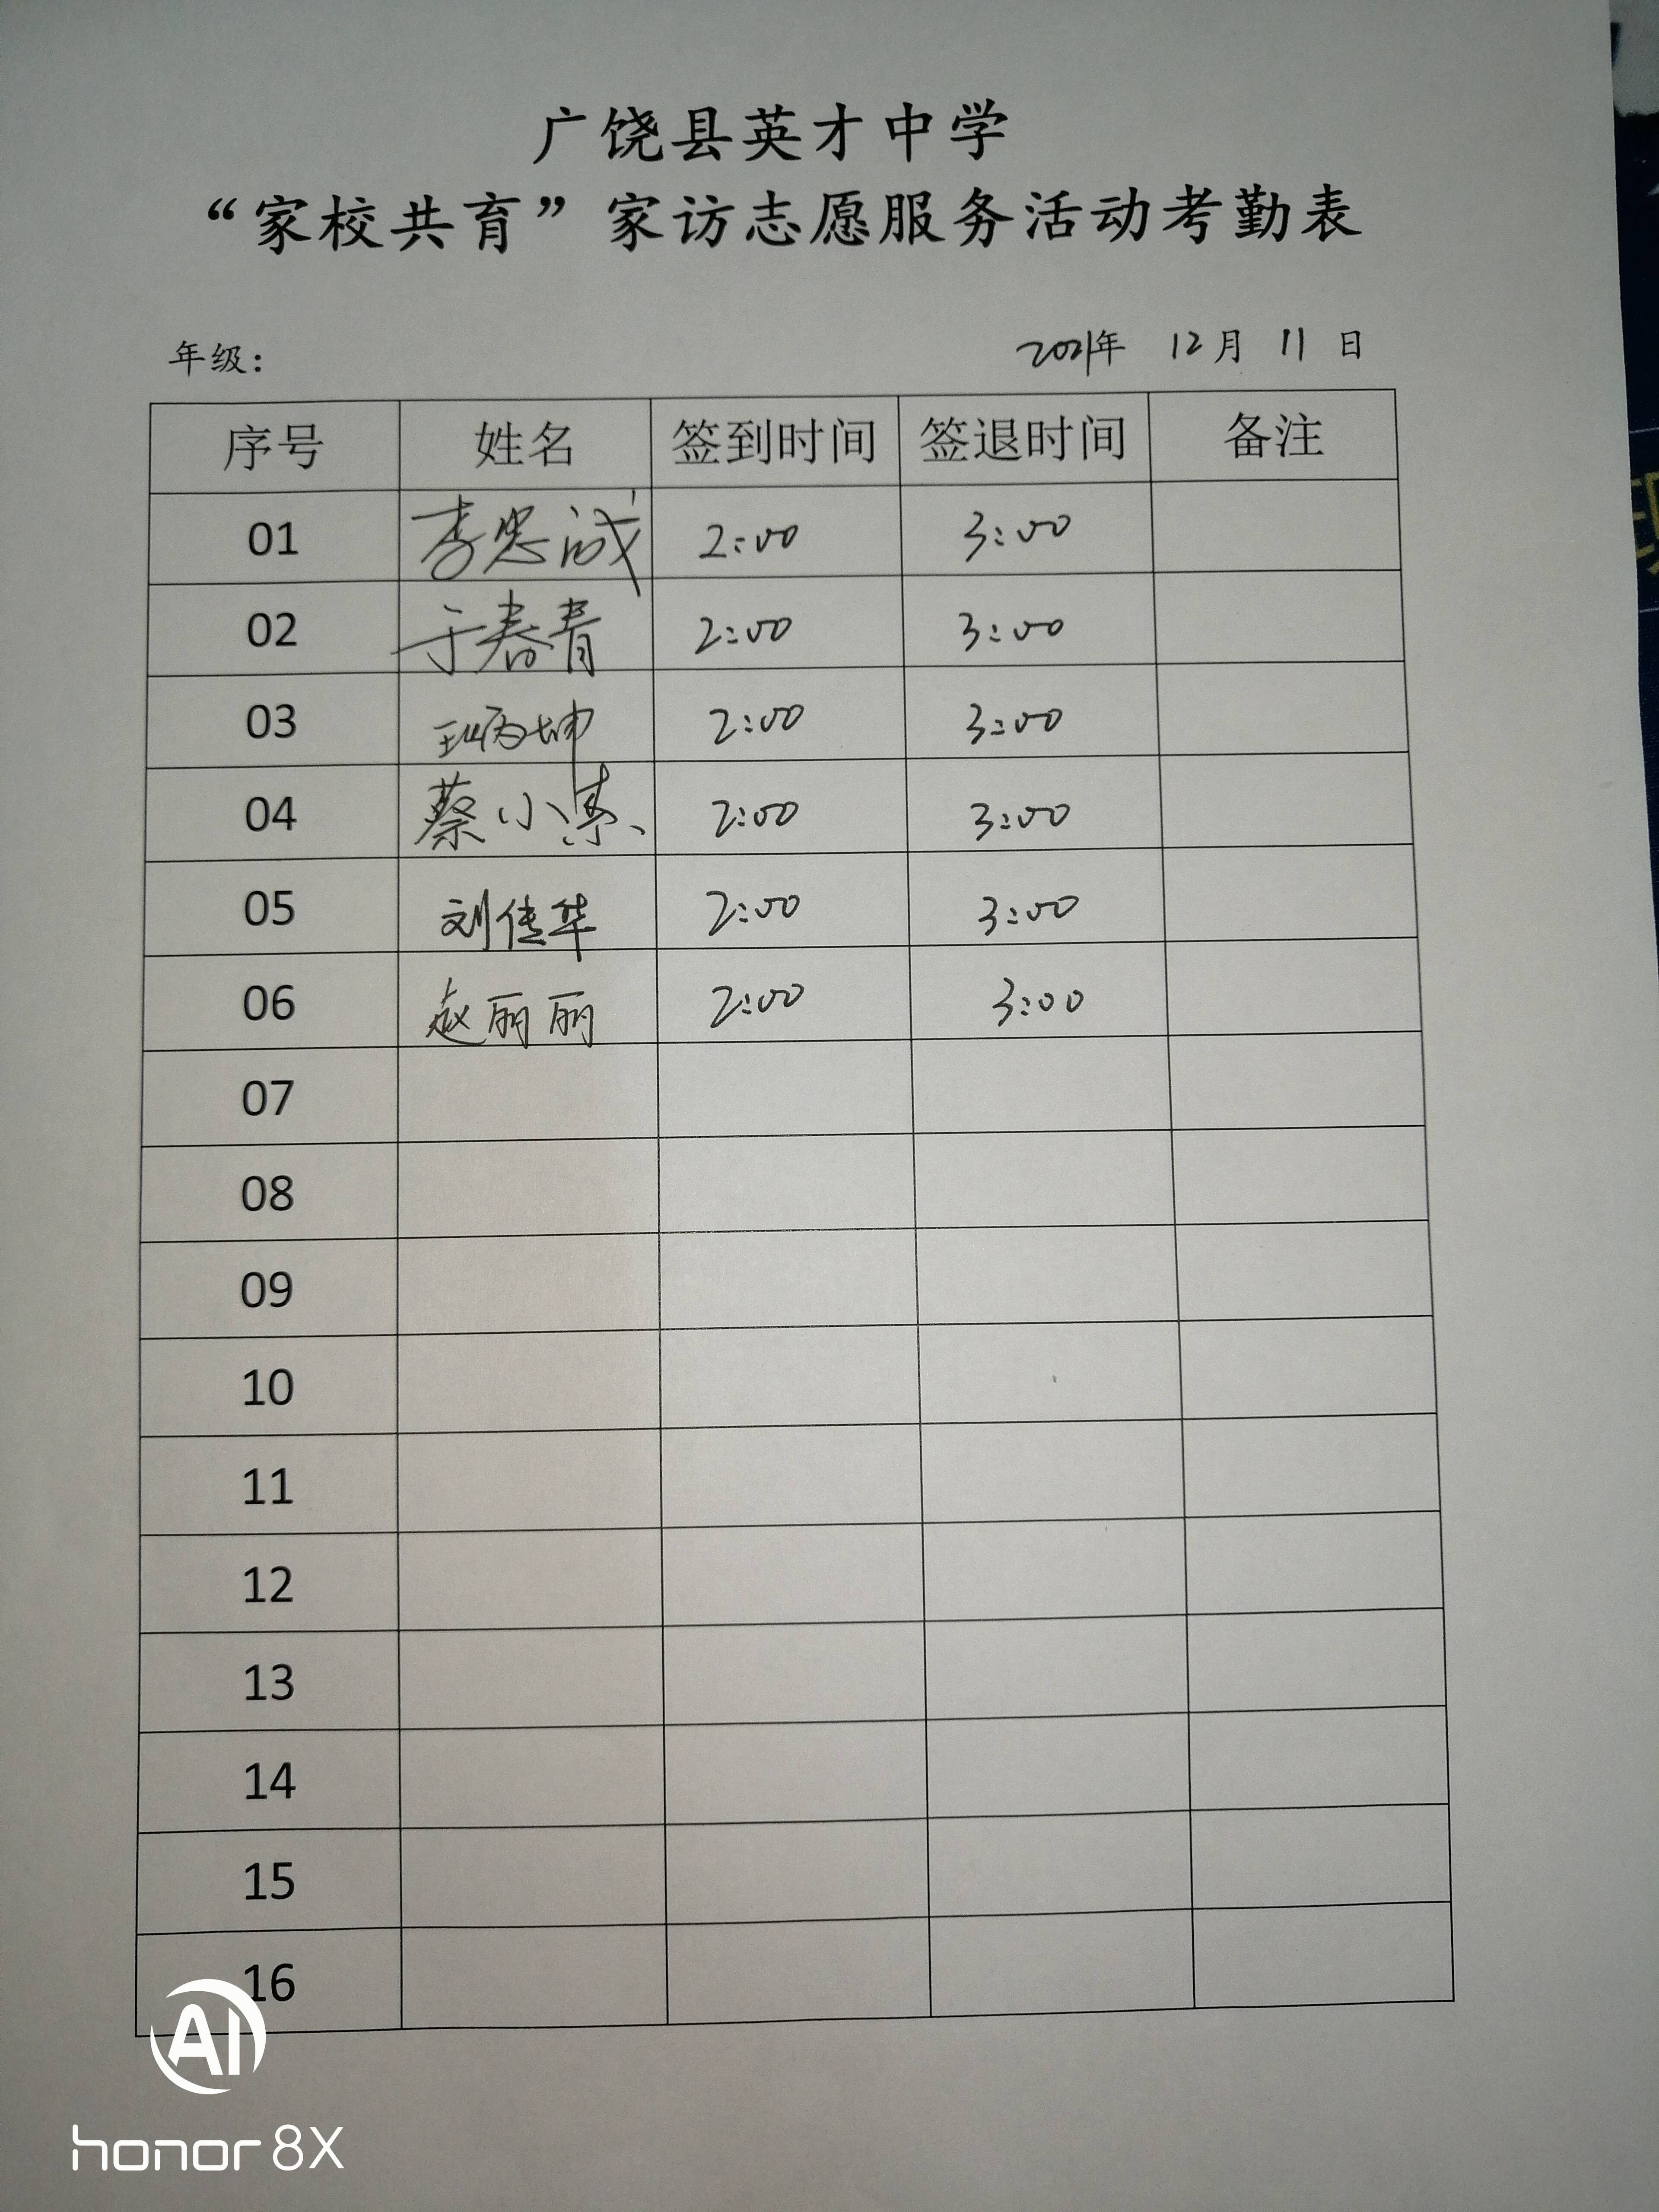 广饶县英才中学
“家校共育”家访志愿服务活动考勤表
年级： 2021年 12月 11日
序号 姓名 签到时间 签退时间 备注
01 李忠诚 2:00 3:00
02 于春青 2:00 3:00
03 2:00 3:00
04 蔡小 2:00 3:00
05 刘传华 2:00 3:00
06 赵丽丽 2:00 3:00
07
08
09
10
11
12
13
14
15
16
AI
honor 8X